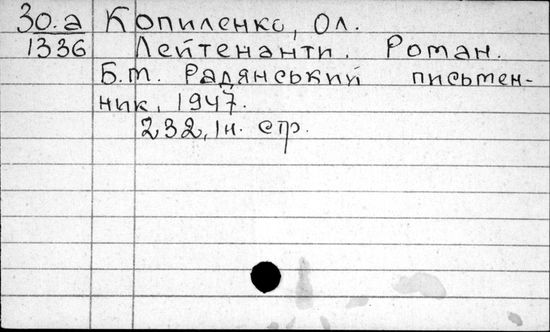 30.а Копиленко, Ол.
1336 Лейтенанти. Роман.
Б.м. Радянський письмен-
ник, 1947.
232, 1н. стр.